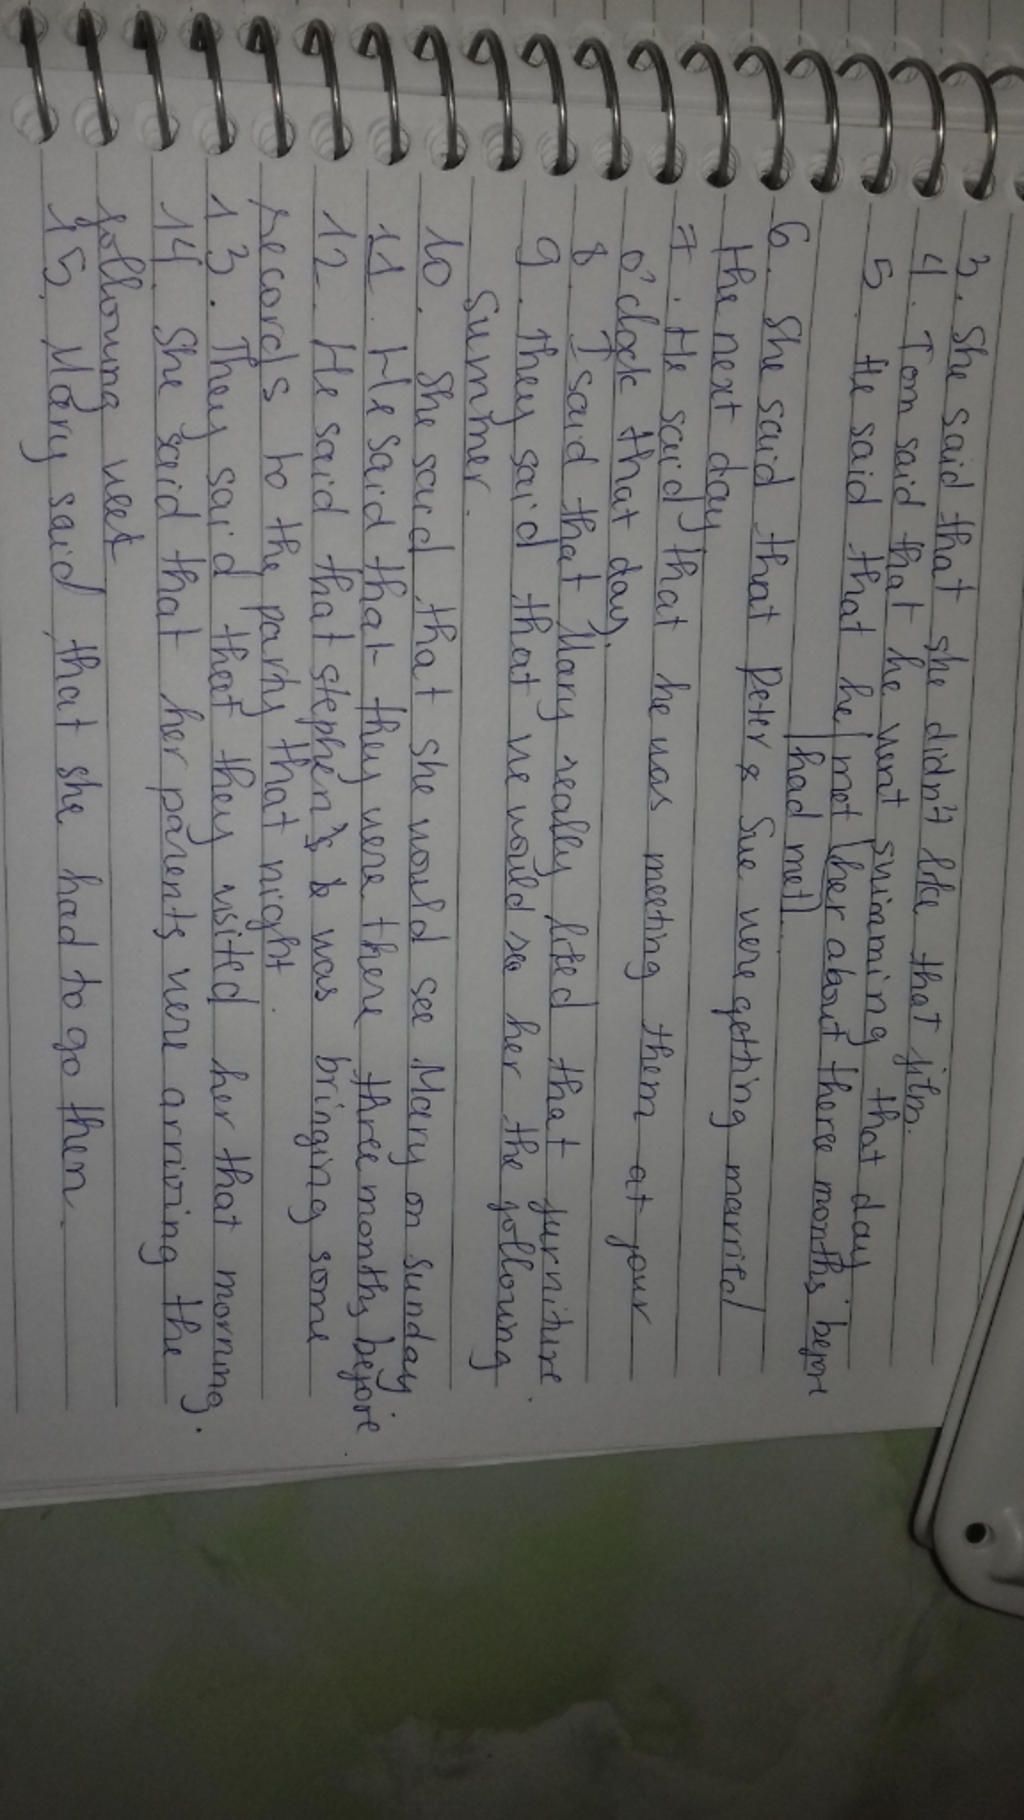 3. She said that she didn't like that film.
4. Tom said that he went swimming that day
5. He said that he met her about theree months before
had met
6. She said that Peter & Sue were getting married
the next day
7. He said that he was meeting them at four
o'clock that day.
8 I said that Mary really liked that furniture.
9. They said that we would see her the following
Summer.
10. She said that she would see Mary on Sunday
11. He said that they were there three months before
12. He said that Stephen was bringing some
records to the party that night.
13. They said that they visited her that morning.
14. She said that her parents were arriving the
following week
15. Mary said that she had to go then.